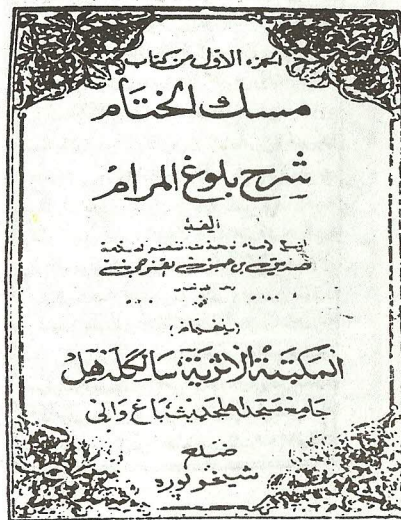 الجزء الاول من كتاب
مسك الختام
شرح بلوغ المرام
صديق بن حسن القنوجي
المكتبة الاثرية سانگلہ ہل
جامع مسجد اهلحديث باغ والی
ضلع
شيخوپوره